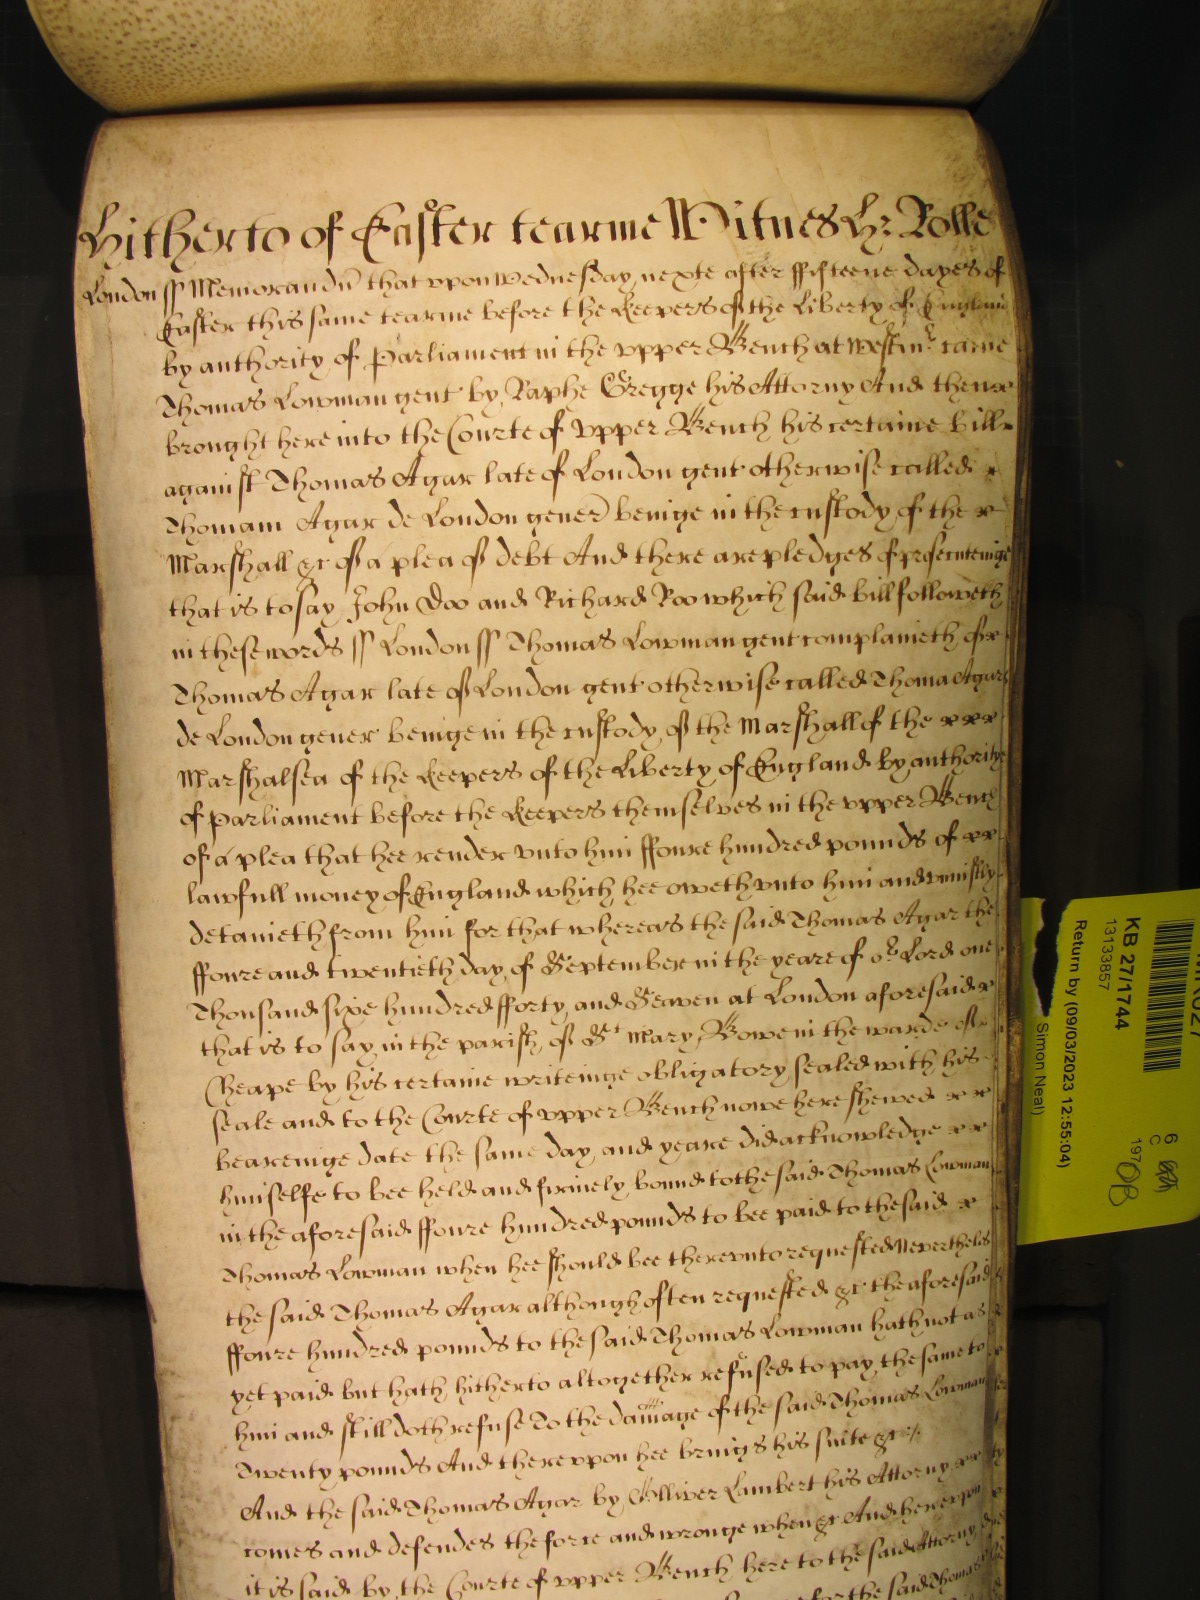 Hitherto of Easter tearme Witnes H: Rolle
London ss Memorandu that upon wednesday nexte after ffifteene dayes of
Easter this same tearme before the Keepers of the Liberty of England
by authority of Parliament in the upper Bench at Westmr came
Thomas Lowman gent by Raphe Gregge his Attorny And then
brought here into the Courte of upper Bench his certaine bill
against Thomas Agar late of London gent otherwise called
Thomam Agar de London gener beinge in the custody of the
Marshall &c of a plea of debt And there are pledges of prosecuteinge
that is to say John Doo and Richard Roo which said bill followeth
in these words ss London ss Thomas Lowman gent complaineth of
Thomas Agar late of London gent otherwise called Thoma Agar
de London gener beinge in the custody of the Marshall of the
Marshalsea of the Keepers of the Liberty of England by authority
of Parliament before the Keepers themselves in the upper Bench
of a plea that hee render unto him ffoure hundred pounds of
lawfull money of England which hee oweth unto him and uniustly
detaineth from him for that whereas the said Thomas Agar the
ffoure and twentieth day of September in the yeare of or Lord one
Thousand sixe hundred fforty and Seaven at London aforesaid
that is to say in the parish of St Mary Bowe in the warde of
Cheape by his certaine writeinge obligatory sealed with his
seale and to the Courte of upper Bench nowe here shewed
beareinge date the same day and yeare did acknowledge
himselfe to bee held and firmely bound to the said Thomas Lowman
in the aforesaid ffoure hundred pounds to bee paid to the said
Thomas Lowman when hee should bee thereunto requested Nevertheles
the said Thomas Agar although often requested &c the aforesaid
ffoure hundred pounds to the said Thomas Lowman hath not as
yet paid but hath hitherto altogether refused to pay the same to
him and still doth refuse To the damage of the said Thomas Lowman
Twenty pounds And thereupon hee brings his suite &c
And the said Thomas Agar by Olliver Lambert his Attorny
comes and defendes the force and wronge when &c And hereupon
it is said by the Courte of upper Bench here to the said Attorny
for the said Thomas
KB 27/1744
13133857
Return by (09/03/2023 12:55:04)
Simon Neal)
6
C
197